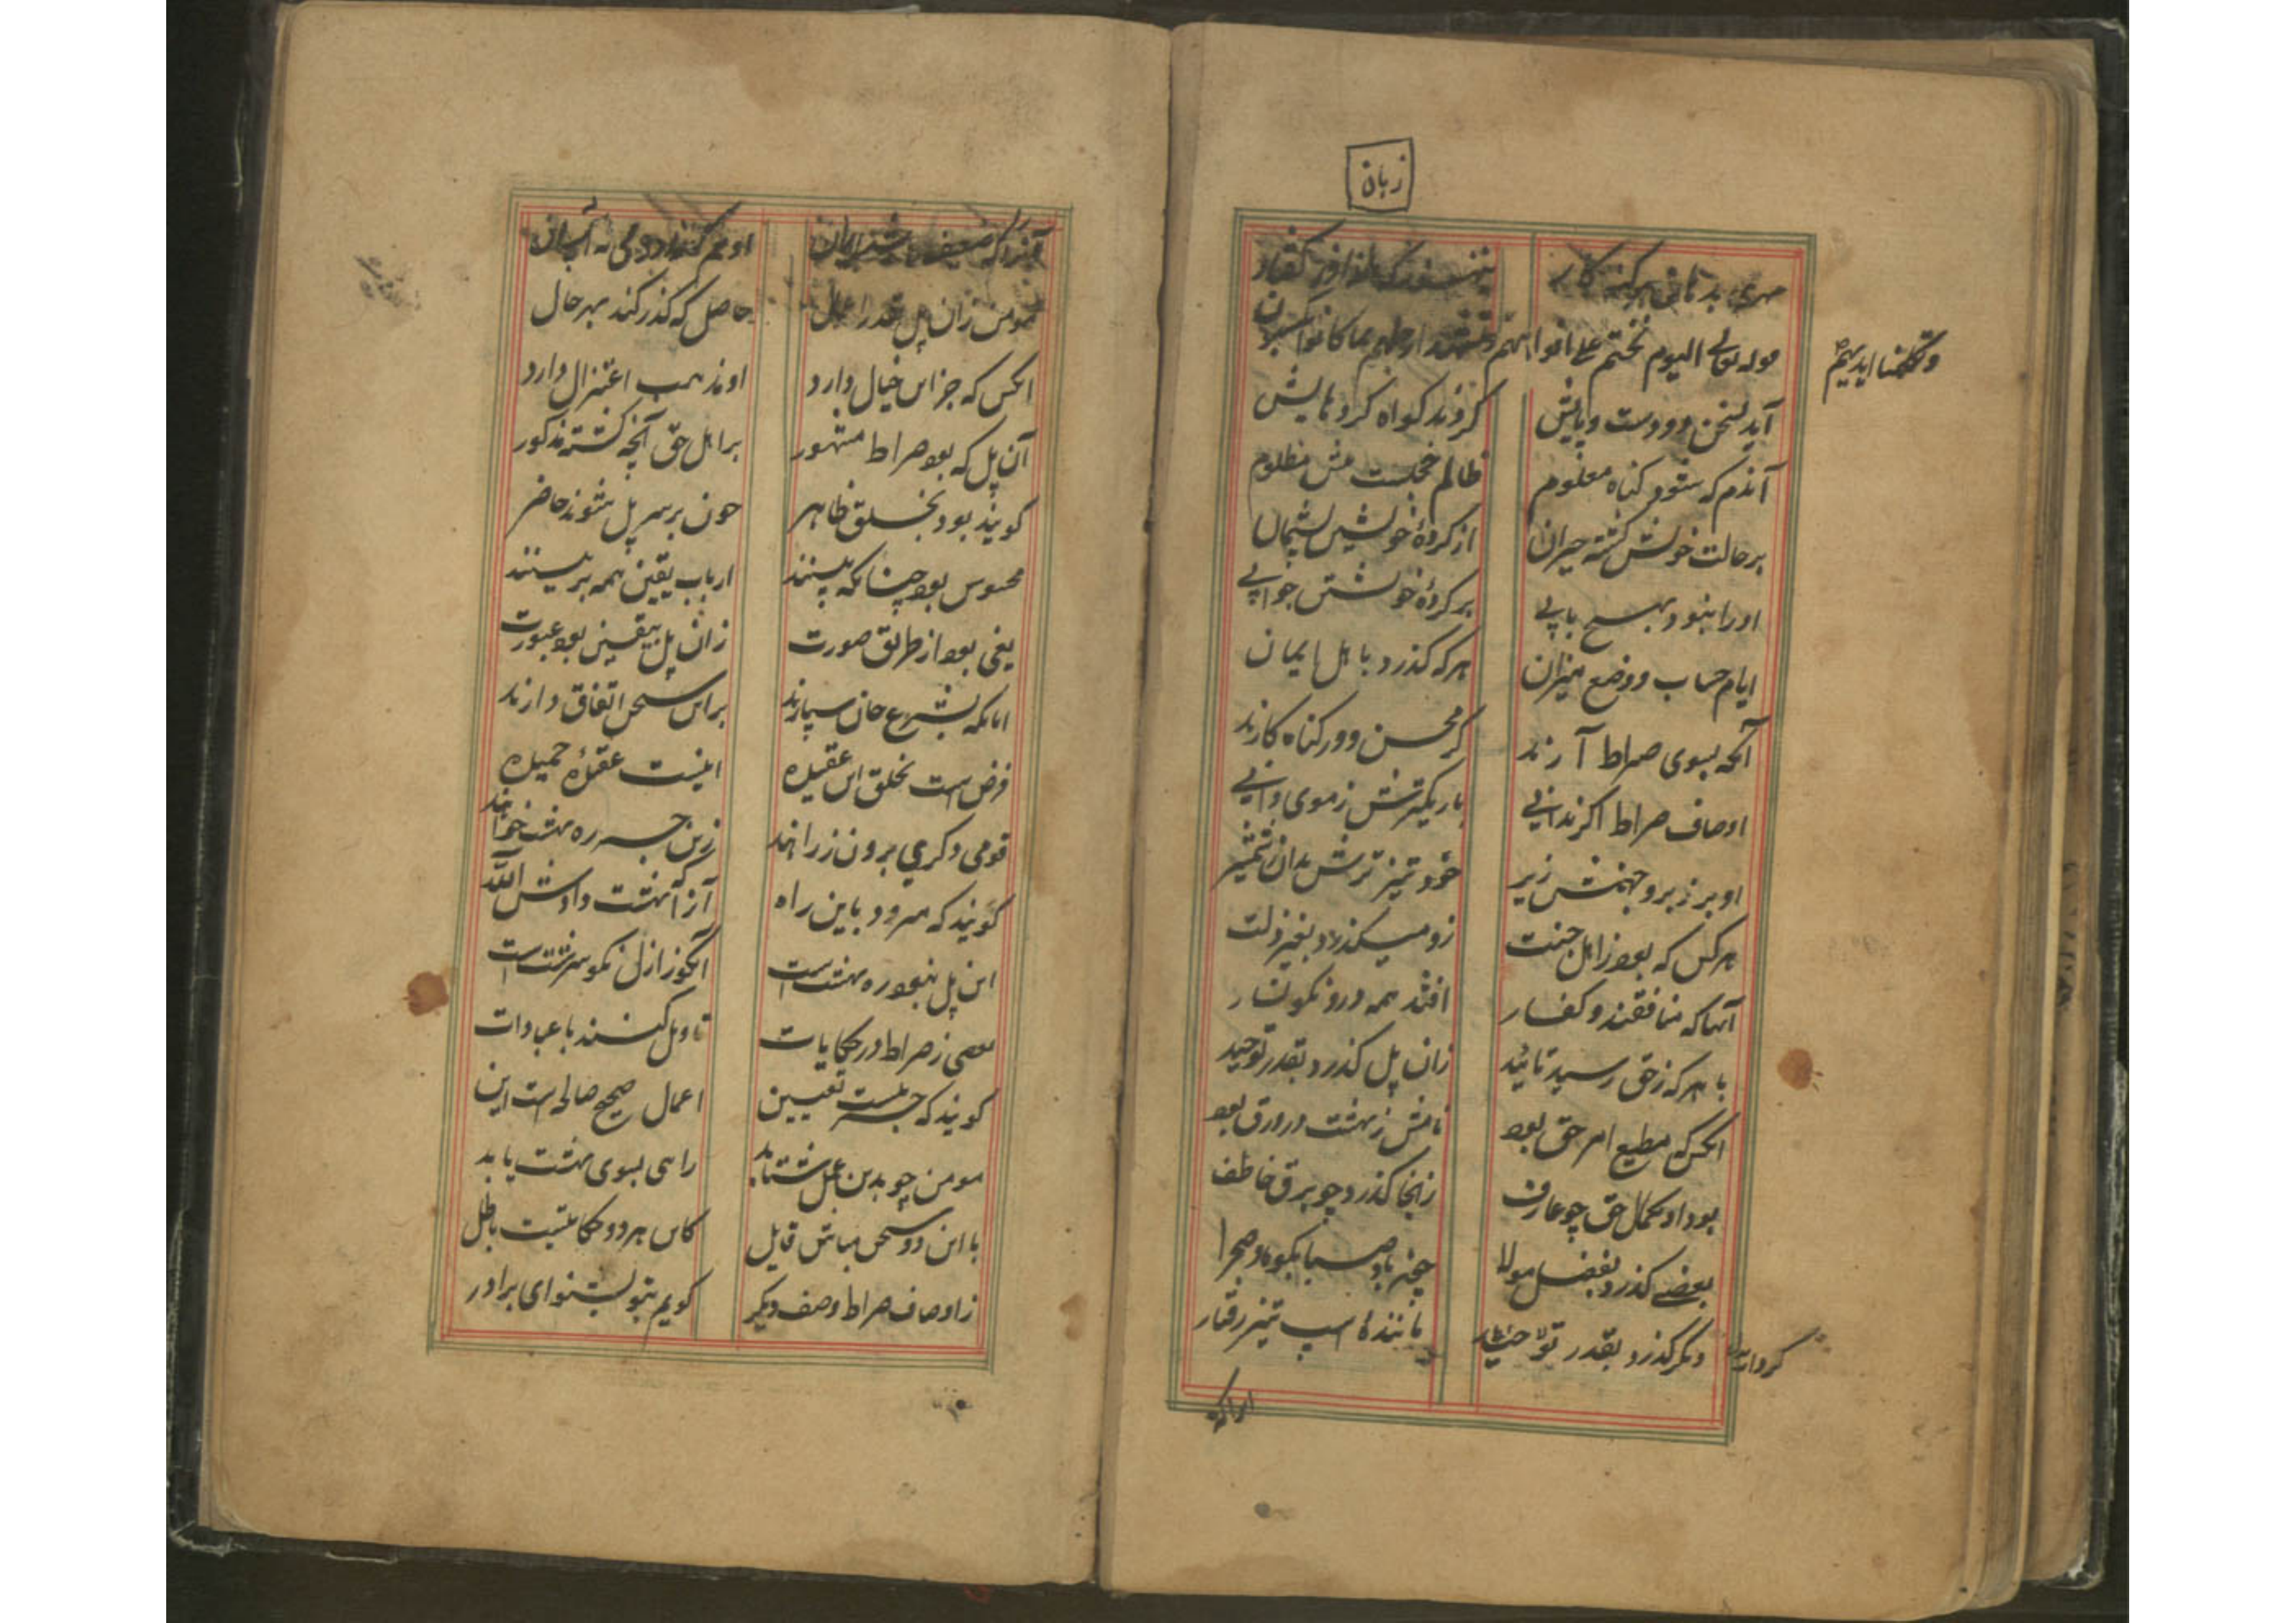 زبان
مهری بدهانی هر گنه کار
قوله تعالی الیوم نختم علی افواههم وتشهد ارجلهم بما کانوا یکسبون
وتکلمنا ایدیهم
آید بسخن دو دست و پایش
کردند گواه کردهایش
آندم که شود گناه معلوم
ظالم خجلست پیش مظلوم
بر حالت خویش گشته حیران
از کردهٔ خویشتن پشیمان
او را نبود بهیچ بابی
بر کردهٔ خویشتن جوابی
ایام حساب و وضع میزان
هر که گذرد باهل ایمان
آنگه بسوی صراط آرند
گر محسن و ور گناه کارند
اوصاف صراط اگر ندانی
باریکترش ز موی دانی
او بر زبر و جهنمش زیر
خود تیزترش بدان ز شمشیر
هر کس که بود ز اهل جنت
زو میگذرد بغیر ذلت
آنها که منافقند و کفار
افتند همه درو نگونسار
با هر که ز حق رسید تائید
زان پل گذرد بقدر توحید
انکس که مطیع امر حق بود
نامش ز بهشت در ورق بود
بود او بکمال حق چو عارف
زانجا گذرد چو برق خاطف
بعضے گذرد بفضل مولا
چون باد صبا بکوه و صحرا
دیگر گذرد بقدر
کردار
مانندهٔ اسپ تیز رفتار
مومن زان پل بقدر اعمال
حاصل که گذر کند بهر حال
انکس که جز این خیال دارد
او مذهب اعتزال دارد
آن پل که بود صراط مشهور
بر اهل حق آنچه گشته مذکور
گویند بود بخلق ظاهر
چون بر سر پل شوند حاضر
محسوس بود چنانکه بینند
ارباب یقین همه برینند
یعنی بود از طریق صورت
زان پل بیقین بود عبورت
انانکه بشرع جان سپارند
بر این سخن اتفاق دارند
فرض است بخلق این عقیده
اینست عقیدهٔ حمیده
قومی دگری برون ز راهند
زین جسر ره بهشت خواهند
گویند که میرود باین راه
آنرا که بهشت دادش الله
این پل نبود ره بهشت است
انکو ز ازل نکو سرشت است
بعضی ز صراط در حکایات
تاویل کنند با عبادات
گویند که جسر نیست تعیین
اعمال صحیح صالح است این
مومن چو بدین عمل شتابد
راهی بسوی بهشت یابد
با این دو سخن مباش قایل
کاین هر دو حکایتیست باطل
ز اوصاف صراط وصف دیگر
گویم بتو بشنو ای برادر